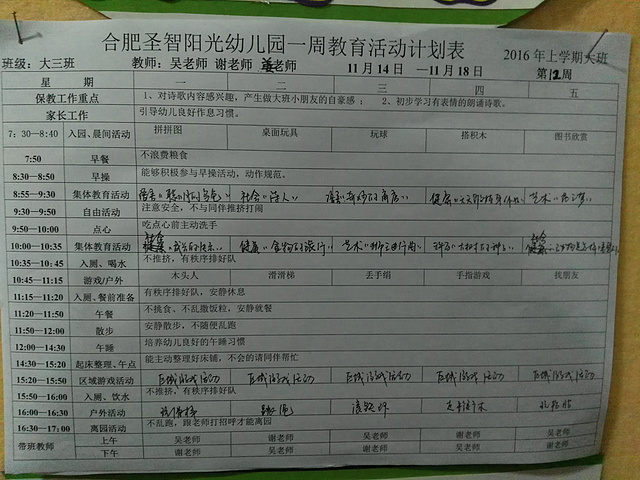 合肥圣智阳光幼儿园一周教育活动计划表
2016年上学期大班
班级：大三班 教师：吴老师 谢老师 老师 11月14日 —11月18日 第12周
星 期 一 二 三 四 五
保教工作重点 1、对诗歌内容感兴趣，产生做大班小朋友的自豪感； 2、初步学习有表情的朗诵诗歌。
家长工作 引导幼儿良好作息习惯。
7：30—8:40 入园、晨间活动 拼拼图 桌面玩具 玩球 搭积木 图书欣赏
7:50 早餐 不浪费粮食
8:30—8:50 早操 能够积极参与早操活动，动作规范。
8:55—9:30 集体教育活动 社会 健康 艺术
9:30—9:50 自由活动 注意安全，不与同伴推挤打闹
9:50—10:00 点心 吃点心前主动洗手
10:00—10:35 集体教育活动 社会 健康 食物的旅行 艺术 科学 社会
10:35—10：45 入厕、喝水 不推挤，有秩序排好队
10:45—11:15 游戏/户外 木头人 滑滑梯 丢手绢 手指游戏 找朋友
11:15—11:20 入厕、餐前准备 有秩序排好队，安静休息
11:20—11:50 午餐 不挑食、不乱撒饭粒，安静就餐
11:50—12:00 散步 安静散步，不随便乱跑
12:00—14:30 午睡 培养幼儿良好的午睡习惯
14:30—15:20 起床整理、午点 能主动整理好床铺，不会的请同伴帮忙
15:20—15:50 区域游戏活动 区域游戏活动 区域游戏活动 区域游戏活动 区域游戏活动 区域游戏活动
15:50—16:00 入厕、饮水 不推挤，有秩序排好队
16:00—16:30 户外活动
16:30—17：00 离园活动 不乱跑，跟老师打招呼才能离园
带班教师 上午 吴老师 谢老师 吴老师 谢老师 吴老师
下午 谢老师 吴老师 谢老师 吴老师 谢老师